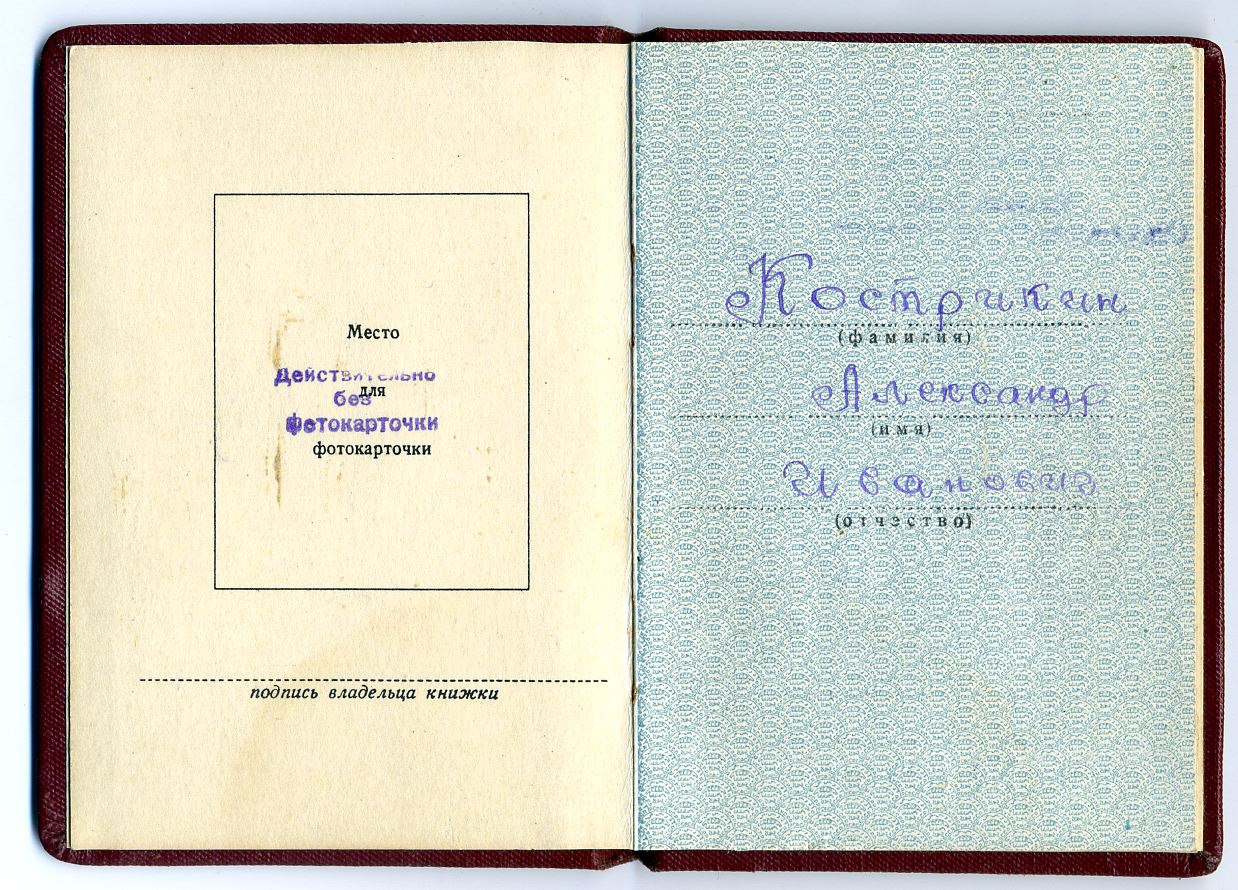 Место
Действительно
для
без
фотокарточки
фотокарточки
подпись владельца книжки
Кострикин
(фамилия)
Александр
(имя)
Иванович
(отчество)